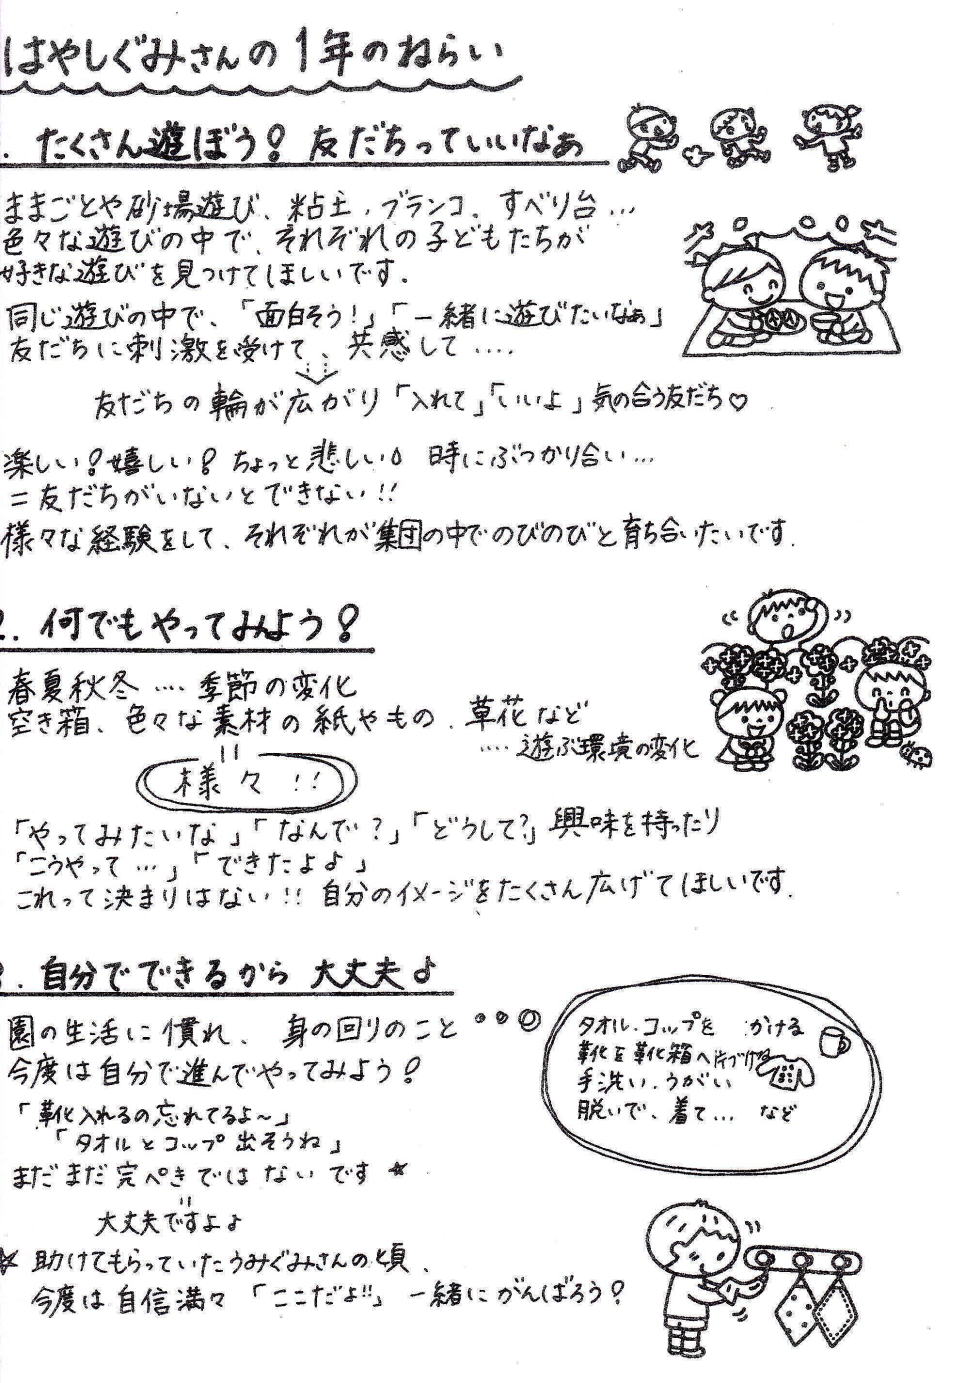 はやしぐみさんの1年のねらい
. たくさん遊ぼう! 友だちっていいなぁ
ままごとや砂場遊び、粘土、ブランコ、すべり台…
色々な遊びの中で、それぞれの子どもたちが
好きな遊びを見つけてほしいです.
同じ遊びの中で、「面白そう!」「一緒に遊びたいなぁ」
友だちに刺激を受けて、共感して‥‥
友だちの輪が広がり「入れて」「いいよ」気の合う友だち♡
楽しい!嬉しい!ちょっと悲しい 時にぶつかり合い…
=友だちがいないとできない!!
様々な経験をして、それぞれが集団の中でのびのびと育ち合いたいです.
2. 何でもやってみよう!
春夏秋冬‥‥季節の変化
空き箱、色々な素材の紙やもの、草花など
‥‥遊ぶ環境の変化
様々!!
「やってみたいな」「なんで?」「どうして?」興味を持ったり
「こうやって…」「できたよ♪」
これって決まりはない!! 自分のイメージをたくさん広げてほしいです.
3. 自分でできるから 大丈夫♪
園の生活に慣れ、身の回りのこと
タオル・コップを かける
靴を靴箱へ片づける
手洗い、うがい
脱いで、着て… など
今度は自分で進んでやってみよう!
「靴入れるの忘れてるよ〜」
「タオルとコップ出そうね」
まだまだ完ぺきではないです☆
大丈夫ですよ♪
☆ 助けてもらっていたうみぐみさんの頃、
今度は自信満々「ここだよ!!」一緒にがんばろう!